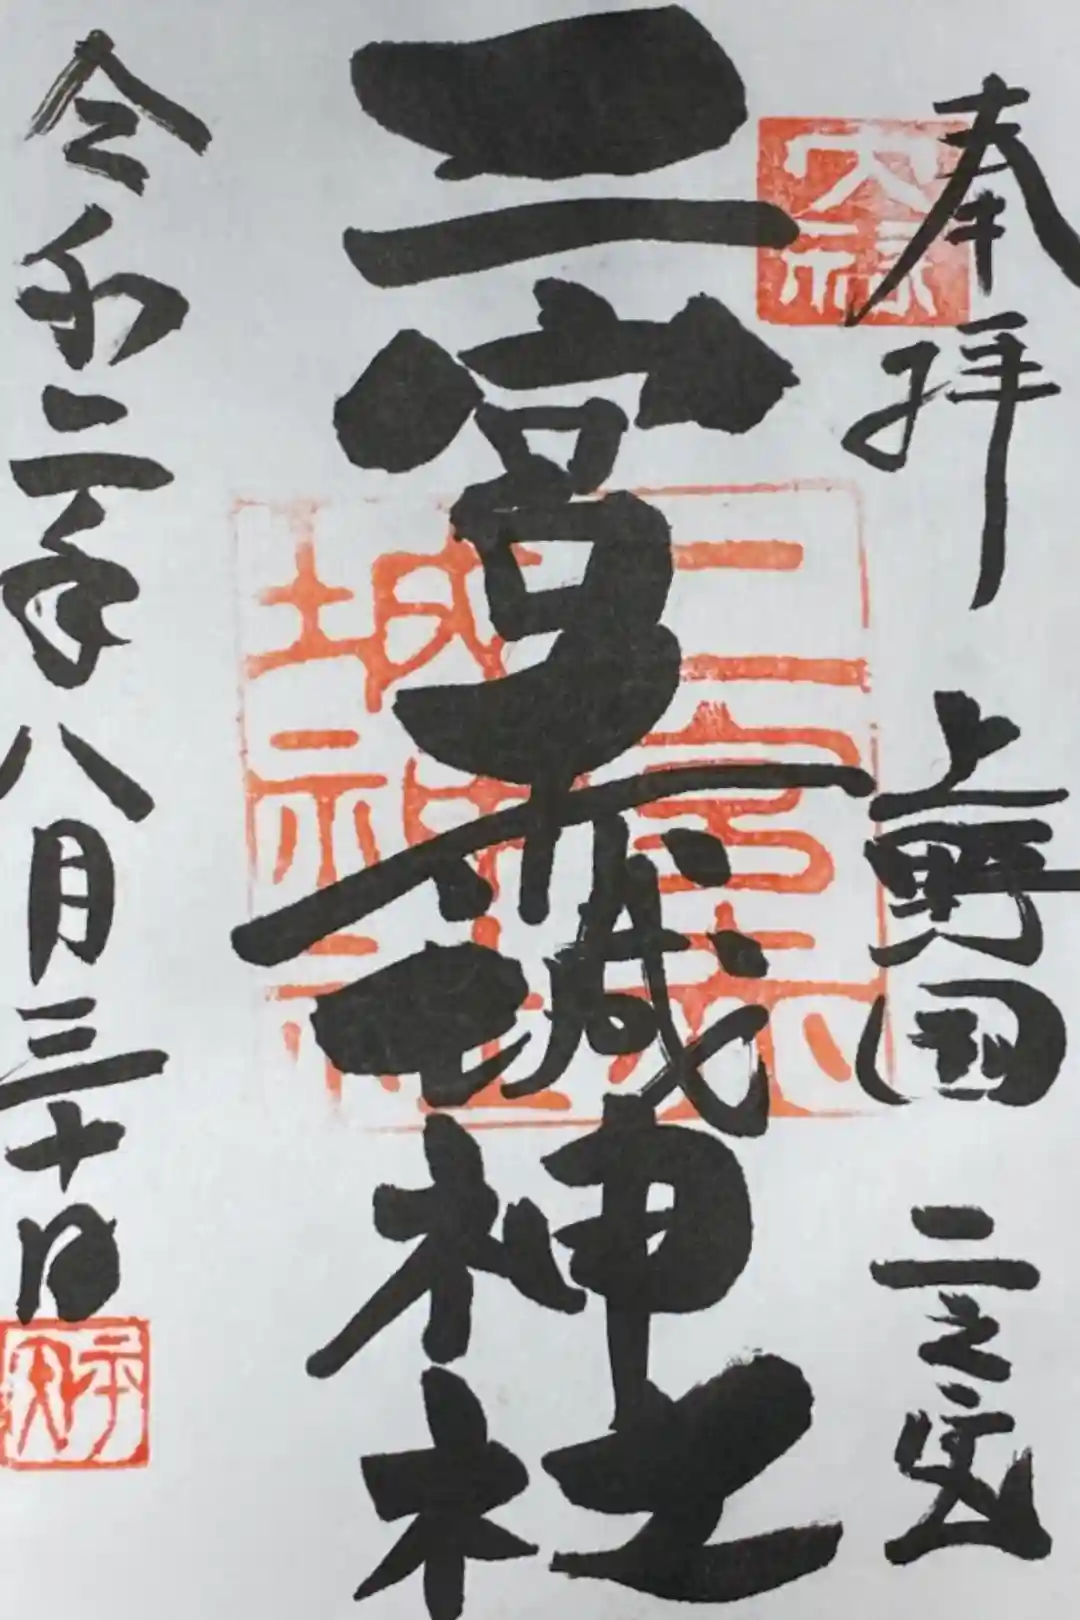 奉拝
上野国 二之宮
二宮赤城神社
令和二年八月三十日
二宮赤城神社